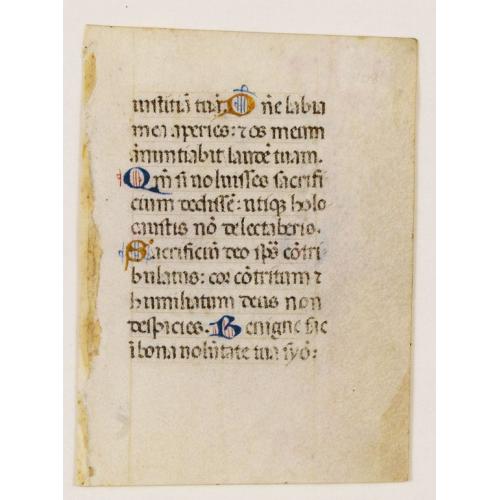 iustitiā tuā. Dñe labia
mea aperies: ⁊ os meum
ānuntiabit laudē tuam.
Qm̄ si noluisses sacrifi
cium dedissē: utiqꝫ holo
caustis nō delectaberis.
Sacrificiū deo spūs cōtri
bulatus: cor cōtritum ⁊
humiliatum deus non
despicies. Benigne fac
ī bona nolūtate tua syō: